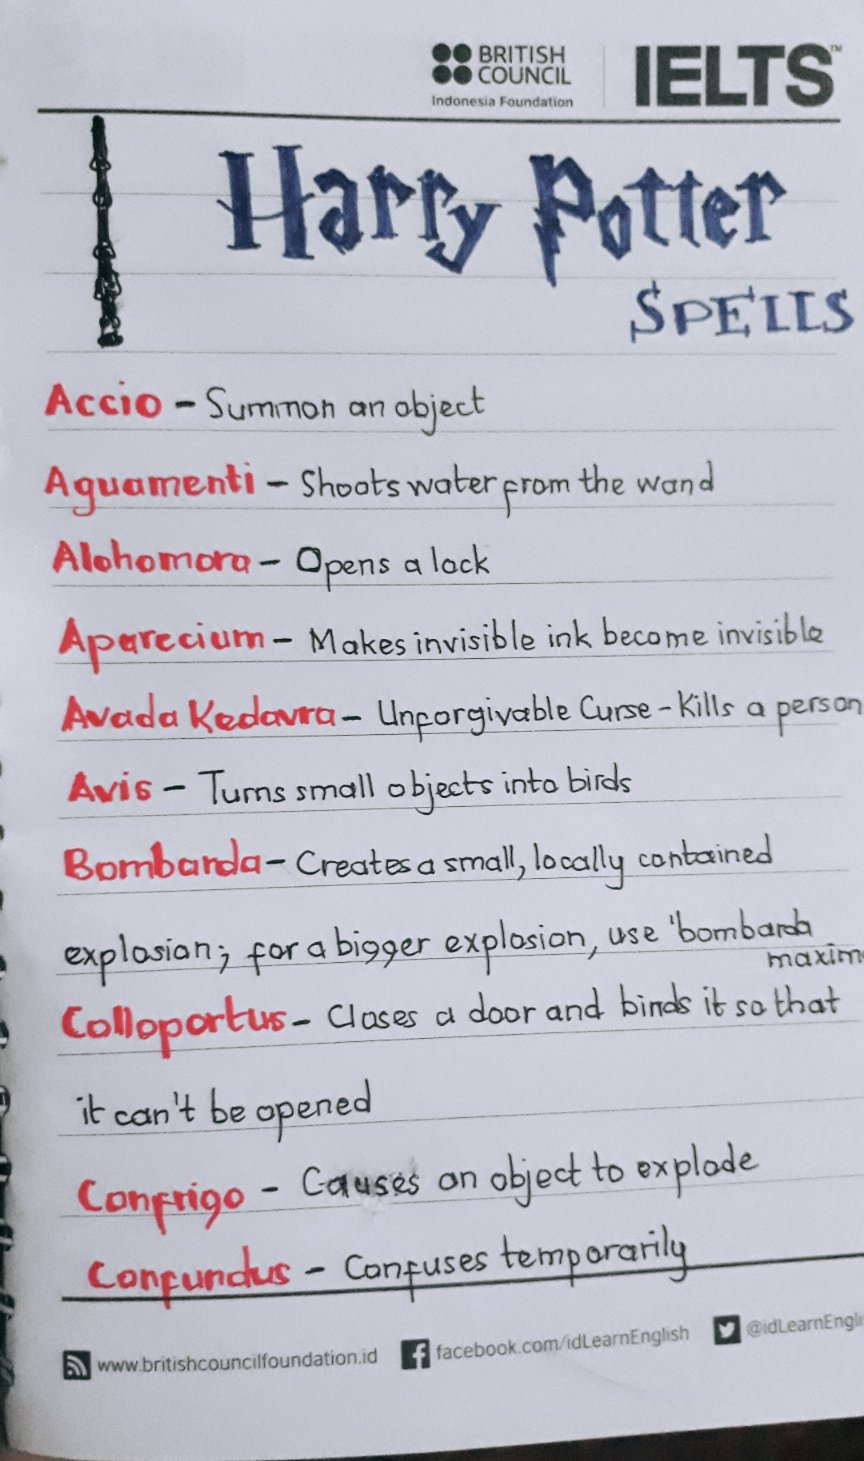 BRITISH
COUNCIL
Indonesia Foundation
IELTS™
Harry Potter
SPELLS
Accio - Summon an object
Aguamenti - Shoots water from the wand
Alohomora - Opens a lock
Aparecium - Makes invisible ink become invisible
Avada Kedavra - Unforgivable Curse - Kills a person
Avis - Turns small objects into birds
Bombarda - Creates a small, locally contained
explosion; for a bigger explosion, use 'bombarda
maxim
Colloportus - Closes a door and binds it so that
it can't be opened
Confrigo - Causes an object to explode
Confundus - Confuses temporarily
www.britishcouncilfoundation.id facebook.com/idLearnEnglish @idLearnEngli